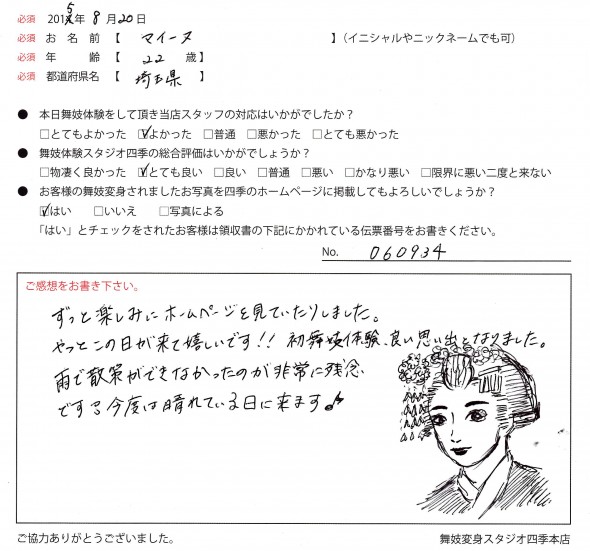 必須 2015年 8月20日
必須 お名前【 マイーヌ 】(イニシャルやニックネームでも可)
必須 年齢【 22 歳】
必須 都道府県名【 埼玉県 】
● 本日舞妓体験をして頂き当店スタッフの対応はいかがでしたか?
□とてもよかった ☑よかった □普通 □悪かった □とても悪かった
● 舞妓体験スタジオ四季の総合評価はいかがでしょうか?
□物凄く良かった ☑とても良い □良い □普通 □悪い □かなり悪い □限界に悪い二度と来ない
● お客様の舞妓変身されましたお写真を四季のホームページに掲載してもよろしいでしょうか?
☑はい □いいえ □写真による
「はい」とチェックをされたお客様は領収書の下記にかかれている伝票番号をお書きください。
No. 060934
ご感想をお書き下さい。
ずっと楽しみにホームページを見ていたりしました。
やっとこの日が来て嬉しいです!! 初舞妓体験、良い思い出となりました。
雨で散策ができなかったのが非常に残念
です。今度は晴れている日に来ます♪
ご協力ありがとうございました。
舞妓変身スタジオ四季本店